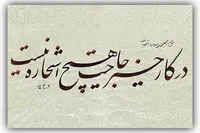 در کار خیر حاجت هیچ استخاره نیست